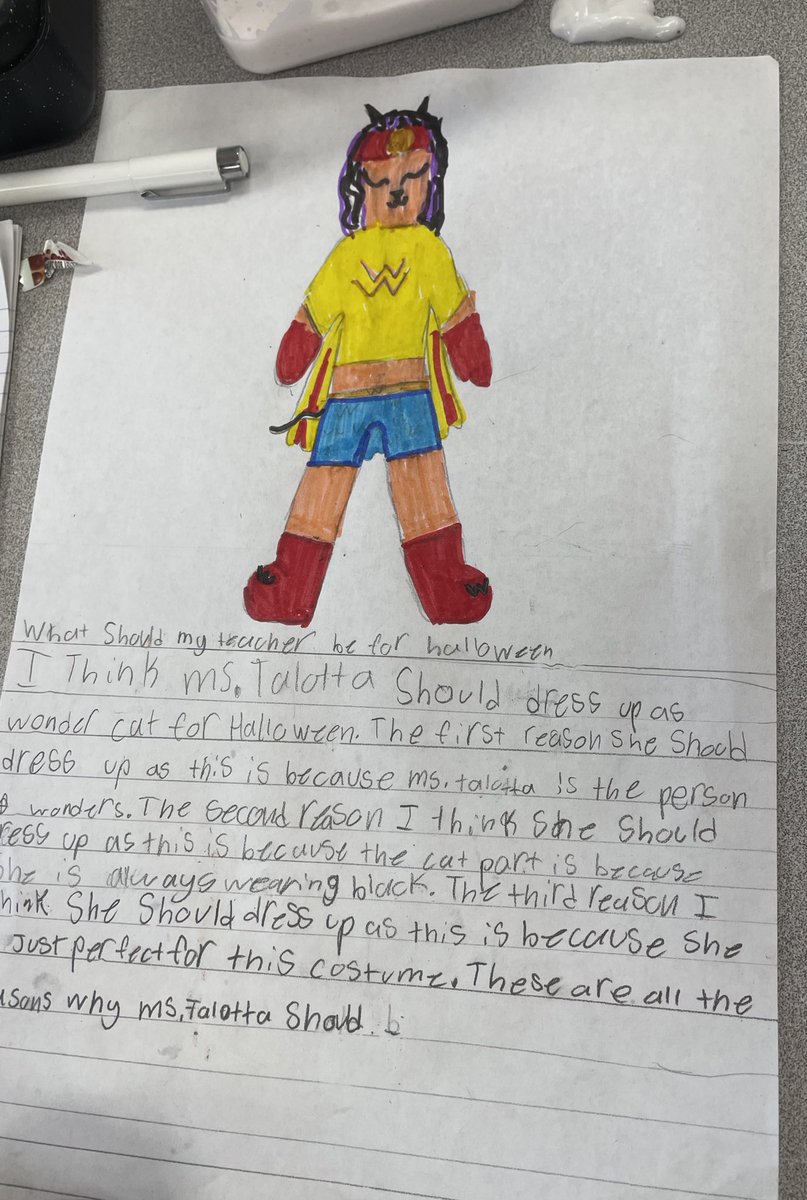 W
W
W
W
What Should my teacher be for halloween
I Think ms. Talotta Should dress up as
wonder cat for Halloween. The first reason She Should
dress up as this is because ms. talotta is the person
wonders. The second reason I think She Should
ress up as this is because the cat part is because
he is always wearing black. The third reason I
hink She Should dress up as this is because She
Just perfect for this costume. These are all the
sons why ms. Talotta Should b